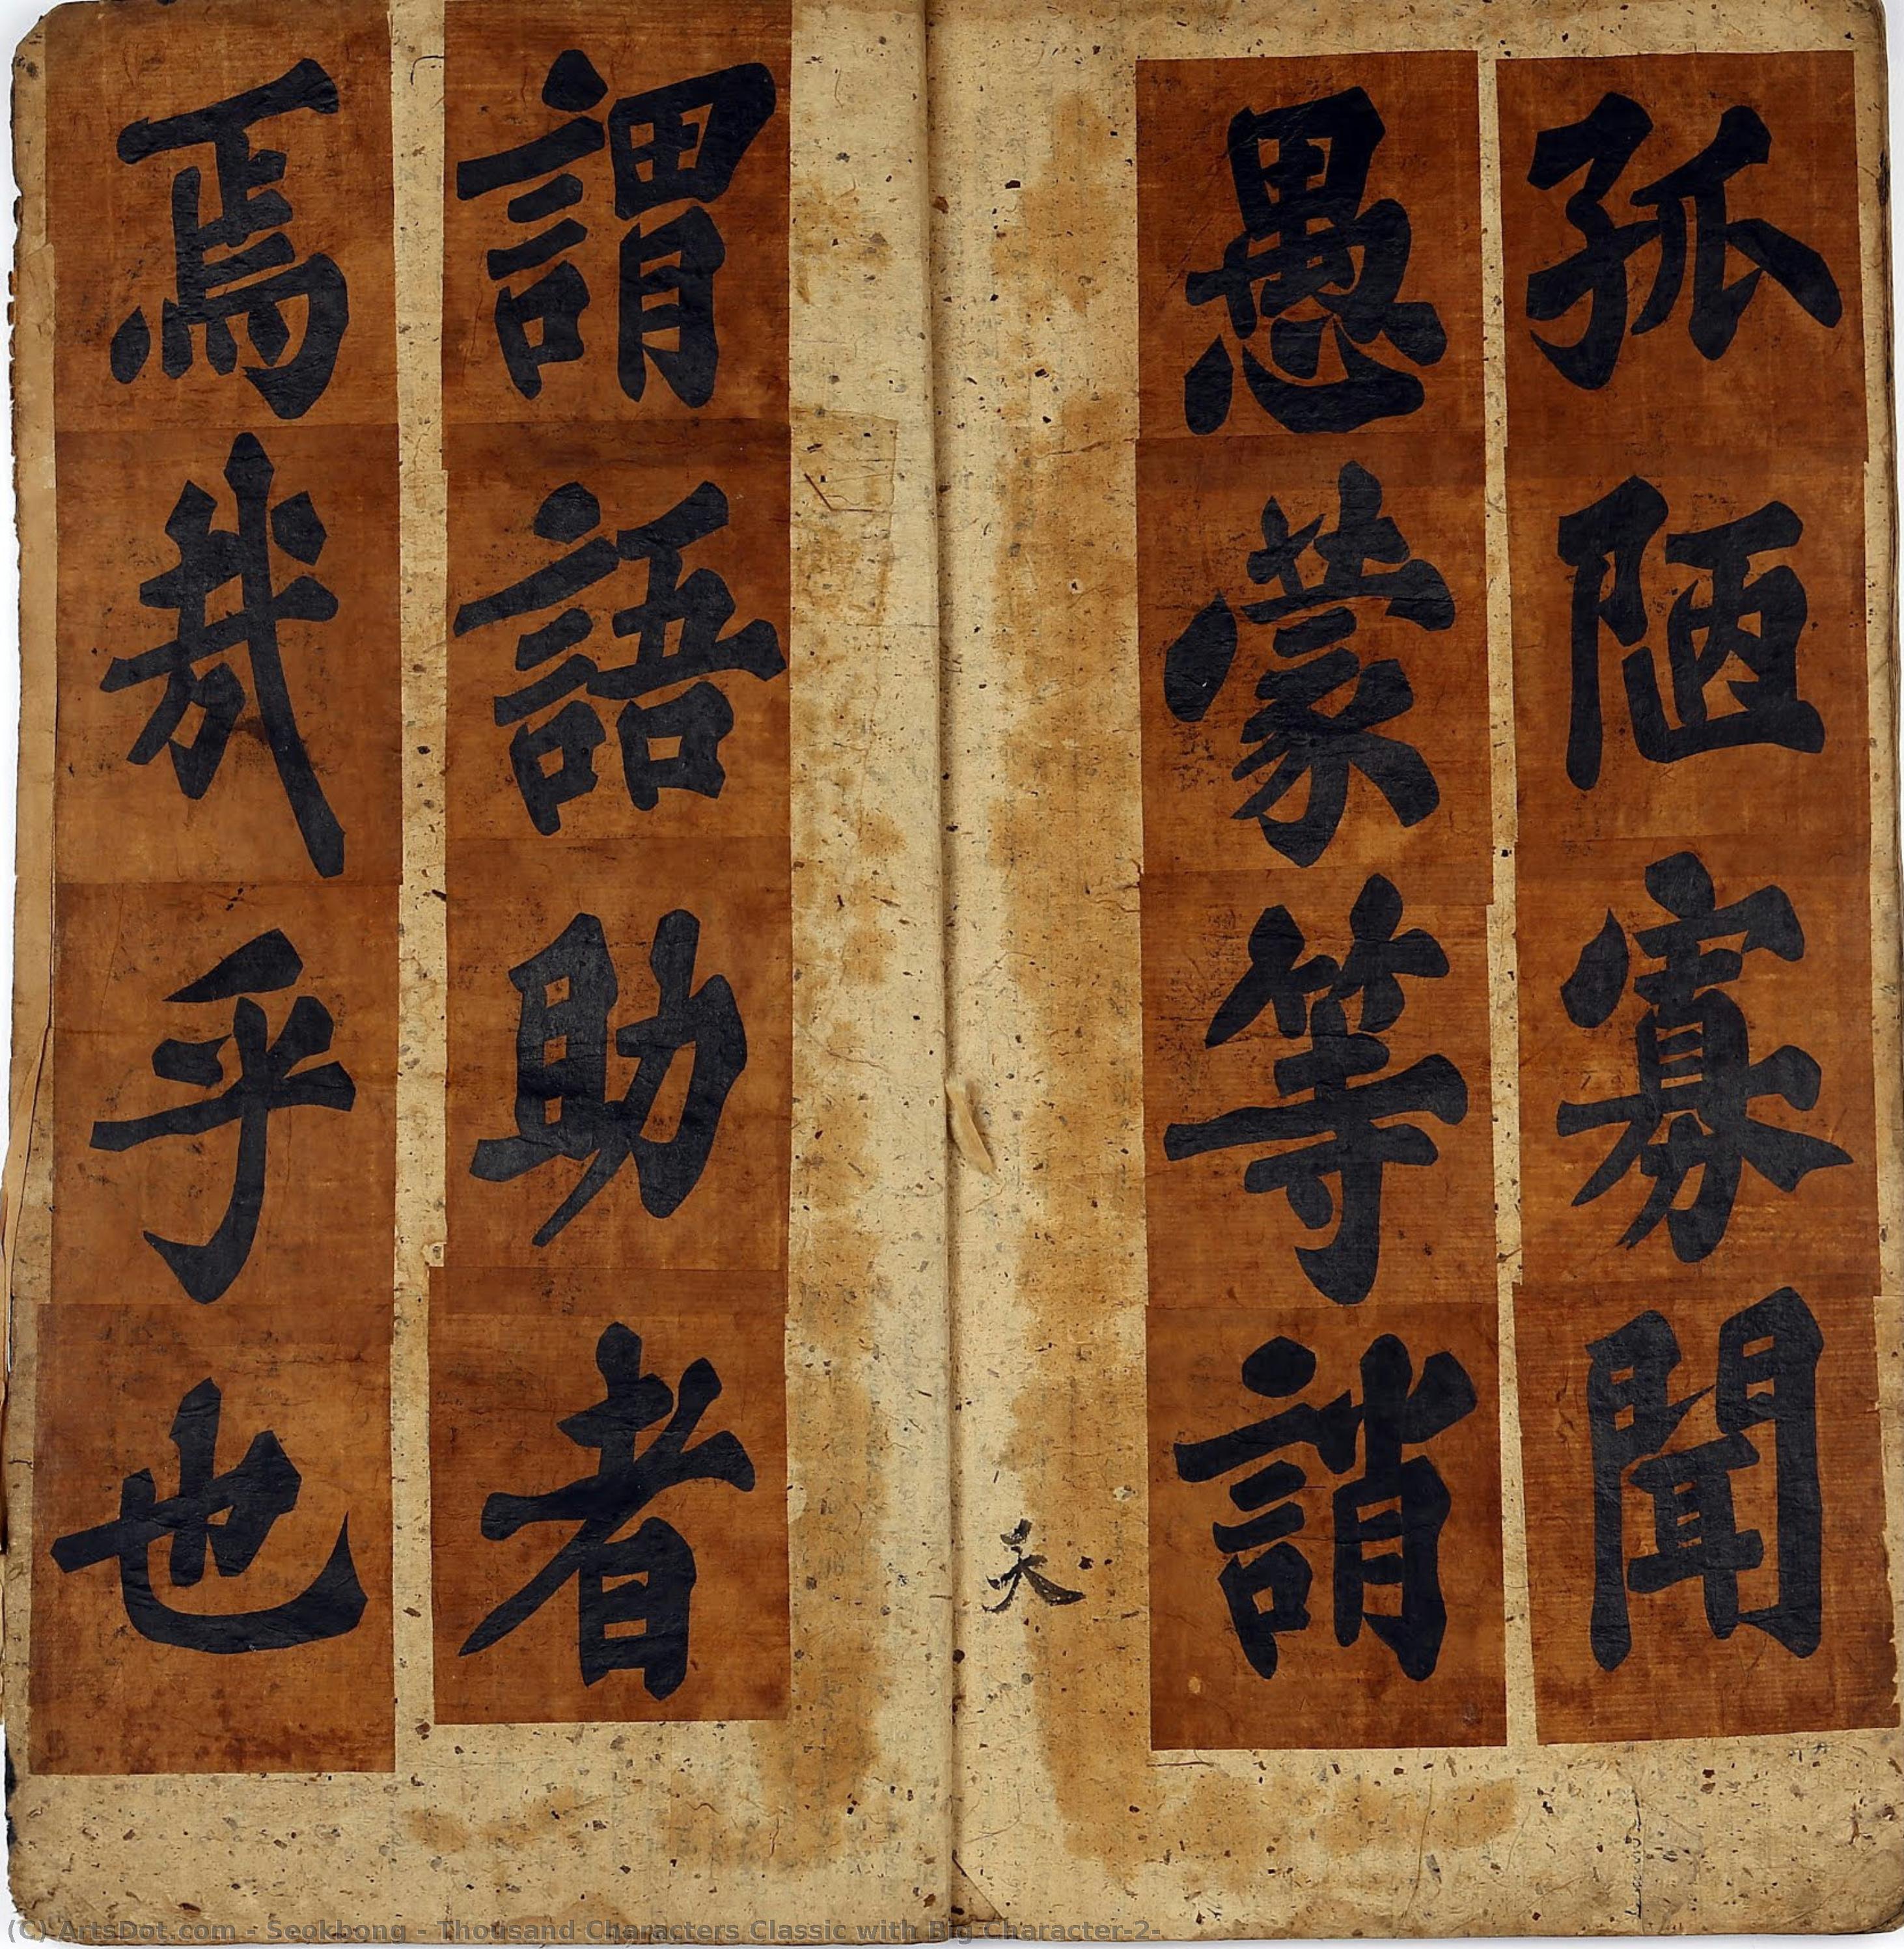 孤陋寡聞
愚蒙等誚
謂語助者
焉哉乎也
天
(C) ArtsDot.com - Seokbong - Thousand Characters Classic with Big Character-2-